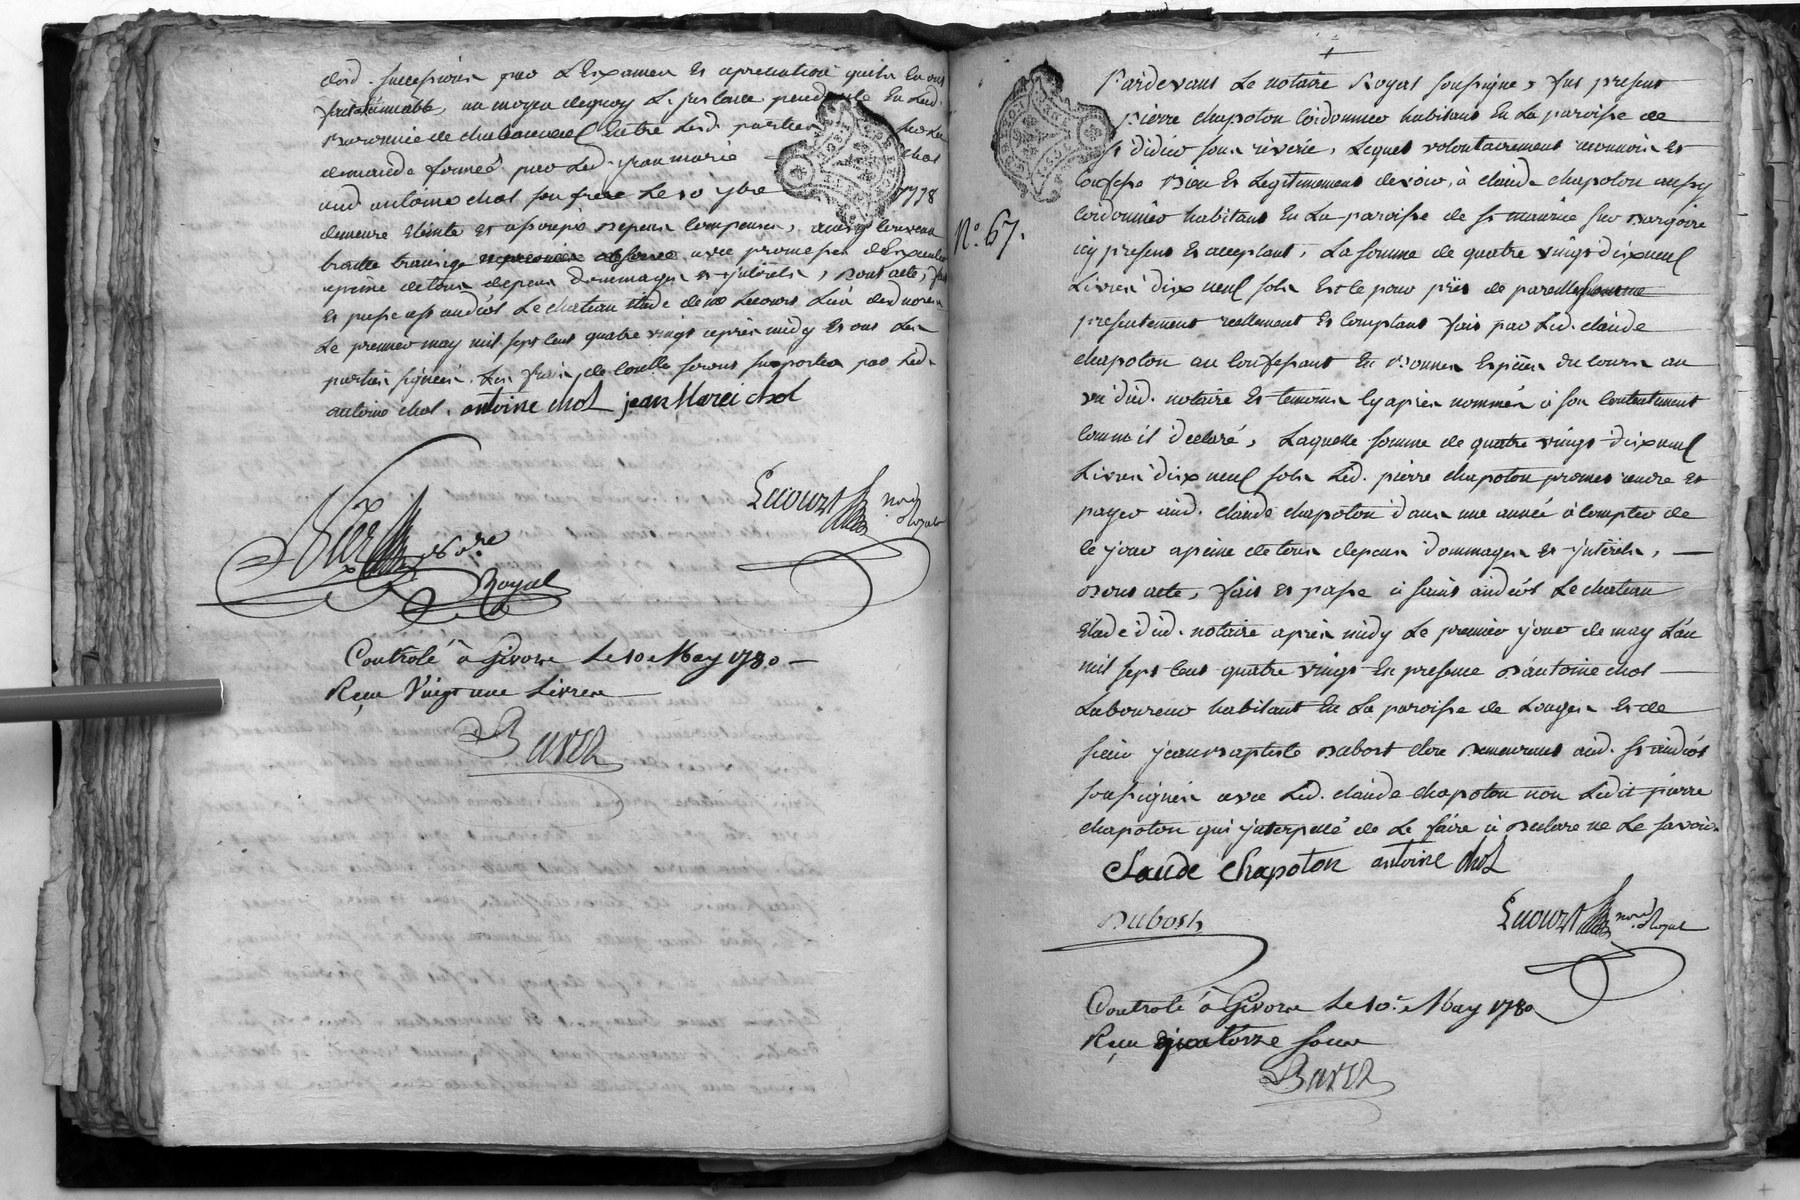 desd. successions par l'Examen et apretiation quils en ont
fait ensemble, au moyen dequoy L jnstance pendante En lad.
Baronnie de chateauneuf Entre Lesd. parties sur La
demande formée par Led. jean marie chol
aud antoine chol son frere Le 10 7bre 1778
demeure eteinte et assoupie depens compensés, ainsy convenu
traitté transigé avec promesses d'Executer
apeine de tous depens dommages et jnterets, dont acte, fait
et passé a st andeol Le chateau Etude de me Lecourt L'un desd notres
Le premier may mil sept cent quatre vingt après midy et ont Les
parties signées. Les frais de Coulle seront suportés par Led.
antoine chol. antoine chol jean Marei chol
Lecourt nore Royal
Nore
Royal
Controlé à Givors Le 10e May 1780
Reçu Vingt une Livres
Bares
Pardevant Le notaire Royal soussigné, fut present
pierre chapoton Cordonnier habitant En La paroisse de
st didier sous riverie, Lequel volontairement reconnoit et
Confesse Bien et Legitimement devoir, à claude chapoton aussy
Cordonnier habitant En La paroisse de st maurice sur Dargoire
N.o 67.
icy present et acceptant, La somme de quatre vingt dix neuf
Livres dix neuf sols Et ce pour prés de pareille somme
presentement reellement et comptant fait par Led. claude
chapoton au Confessant En Bonnes Espèces du cours au
vu dud. notaire et temoins Cyaprès nommés à son Contentement
Comme il declaré, Laquelle somme de quatre vingt dix neuf
Livres dix neuf sols Led. pierre chapoton promet rendre et
payer aud. claude chapoton dans une année à compter de
ce jour apeine de tous depens dommages et jnterets,
Dont acte, fait et passé à saint andeol Le chateau
Etude dud. notaire après midy Le premier jour de may L'an
mil sept cent quatre vingt En presence D'antoine chol
Laboureur habitant En La paroisse de Longes et de
sieur jean Baptiste Dubost clerc Demeurant aud. st andeol
soussignés avec Led. claude chapoton non Ledit pierre
chapoton qui jnterpellé de Le faire à Declaré ne Le savoir.
Claude Chapoton antoine chol
Dubost Lecourt nore Royal
Controlé à Givors Le 10e May 1780
Reçu quatorze sous
Bares